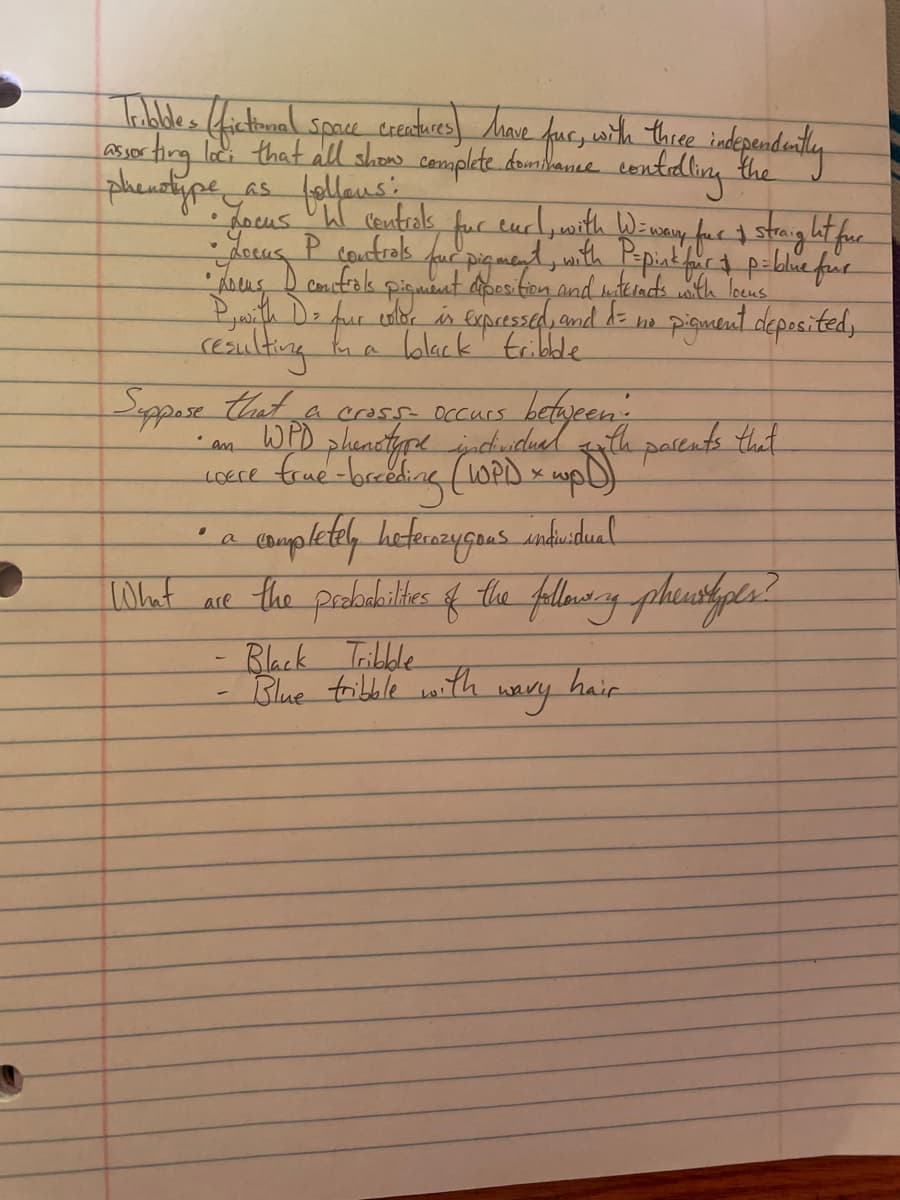 Tribbles (fictional space creatures) have fur, with three independently
assorting loci that all show complete dominance controlling the
phenotype as follows:
• Locus W controls fur curl, with W=wavy fur & straight fur
• Locus P controls fur pigment, with P=pink fur & p=blue fur
• Locus D controls pigment deposition and interacts with locus
P, with D= fur color is expressed, and d= no pigment deposited,
resulting in a black tribble
Suppose that a cross occurs between:
• an WPD phenotype individual with parents that
were true-breeding (WPD x wpD)
• a completely heterozygous individual
What are the probabilities of the following phenotypes?
- Black Tribble
- Blue tribble with wavy hair